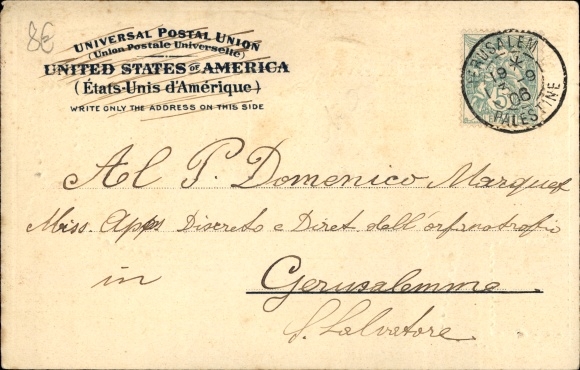 8€
UNIVERSAL POSTAL UNION
(Union Postale Universelle)
UNITED STATES OF AMERICA
(États-Unis d'Amérique)
WRITE ONLY THE ADDRESS ON THIS SIDE
JERUSALEM
06
PALESTINE
Al P. Domenico Marquet
Miss. App. Discreto e Diret. dall'orfanotrofio
in Gerusalemme
S. Salvatore.